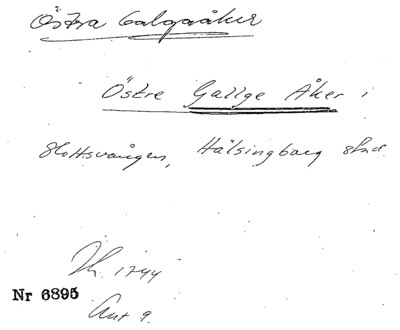 Östra Galgaåker
Östre Gallge Åker i
Slottsvången, Hälsingborg stad.
1744
Nr 6895
Akt 9.